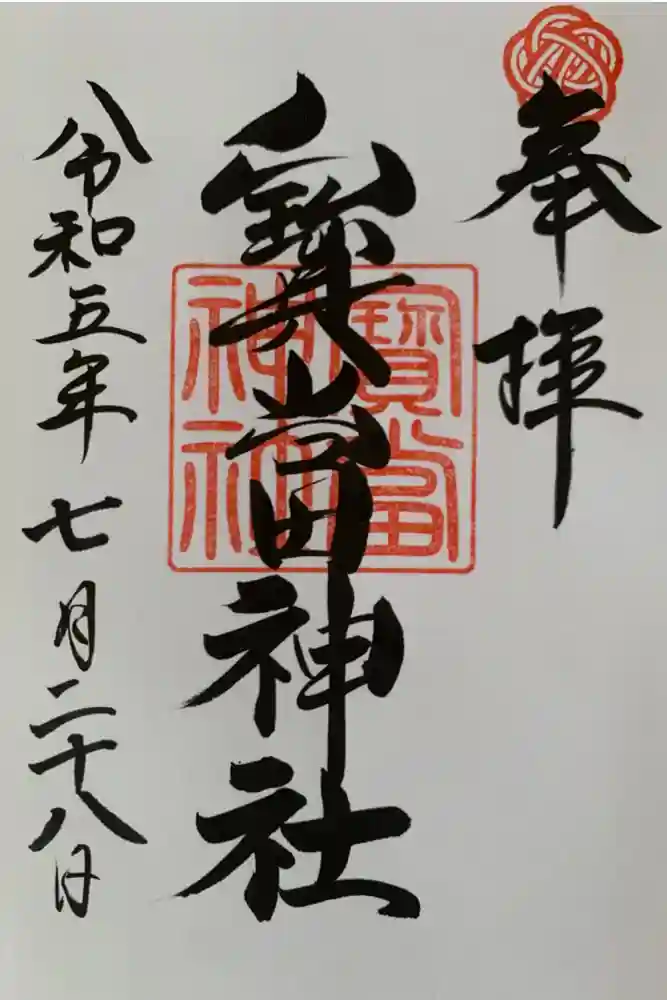 奉拝
寳當神社
寶當
神社
令和五年七月二十八日